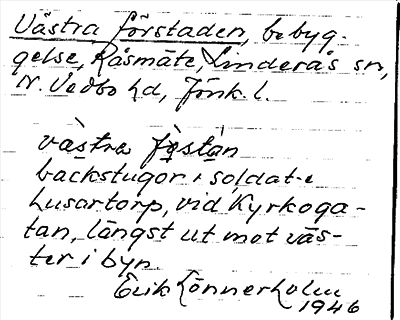 Västra förstaden, bebyg-
gelse, Råsmåte, Linderås sn,
N. Vedbo hd, Jönk. l.
västra fɔstan
backstugor i soldat-e
Lusartorp, vid Kyrkoga-
tan, längst ut mot väs-
ter i byn
Erik Lönnerholm
1946